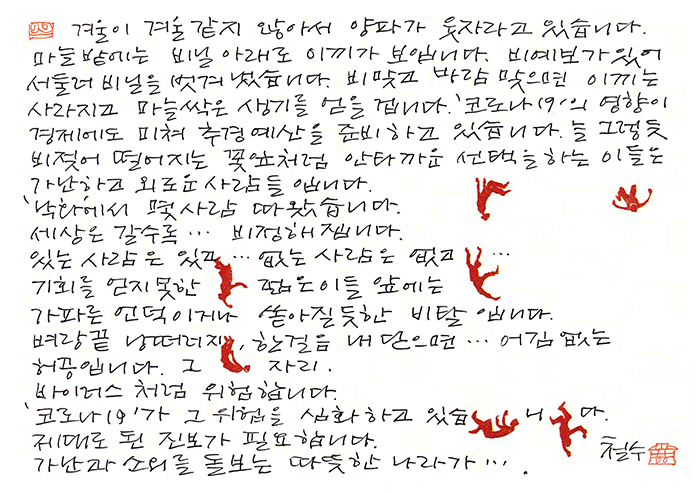 겨울이 겨울같지 않아서 양파가 웃자라고 있습니다.
마늘밭에는 비닐 아래로 이끼가 보입니다. 비예보가 있어
서둘러 비닐을 벗겨 냈습니다. 비맞고 바람 맞으면 이끼는
사라지고 마늘싹은 생기를 얻을 겝니다. '코로나19'의 영향이
경제에도 미쳐 추경예산을 준비하고 있습니다. 늘 그렇듯
비젖어 떨어지는 꽃잎처럼 안타까운 선택을 하는 이들은
가난하고 외로운 사람들 입니다.
'낙화'에서 몇사람 따왔습니다.
세상은 갈수록… 비정해 집니다.
있는 사람은 있고… 없는 사람은 없고…
기회를 얻지못한 젊은이들 앞에는
가파른 언덕이거나 쏟아질듯한 비탈 입니다.
벼랑끝 낭떠러지, 한걸음 내 딛으면… 어김없는
허공입니다. 그 자리.
바이러스처럼 위험합니다.
'코로나19'가 그 위험을 심화하고 있습니다.
제대로 된 진보가 필요합니다.
가난과 소외를 돌보는 따뜻한 나라가….
철수